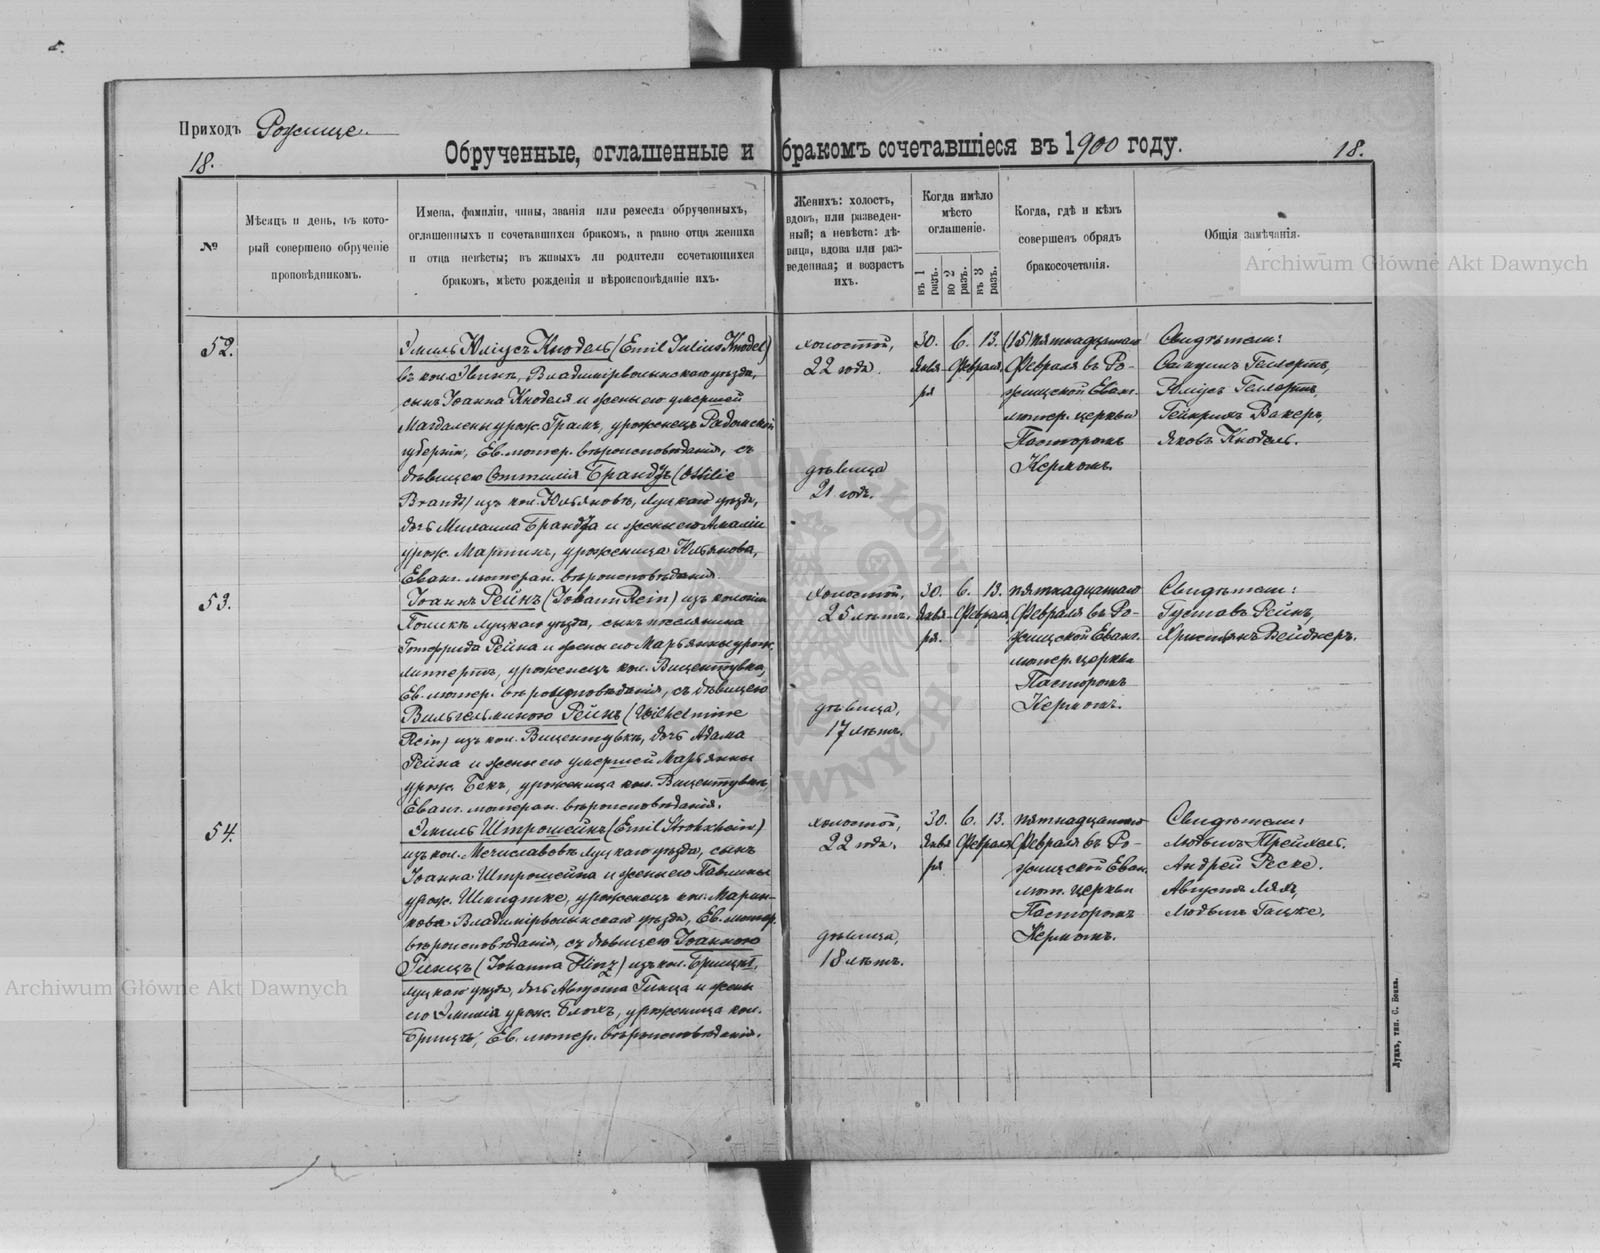 Приходъ Рожище
18.
Обрученные, оглашенные и бракомъ сочетавшіеся въ 1900 году.
18.
№
Мѣсяцъ и день, въ кото-
рый совершено обрученіе
проповѣдникомъ.
Имена, фамиліи, чины, званія или ремесла обрученныхъ,
оглашенныхъ и сочетавшихся бракомъ, а равно отца жениха
и отца невѣсты; въ живыхъ ли родители сочетающихся
бракомъ, мѣсто рожденія и вѣроисповѣданіе ихъ.
Женихъ: холостъ,
вдовъ, или разведен-
ный; а невѣста: дѣ-
вица, вдова или раз-
веденная; и возрастъ
ихъ.
Когда имѣло
мѣсто
оглашеніе.
въ 1
разъ.
во 2
разъ.
въ 3
разъ.
Когда, гдѣ и кѣмъ
совершенъ обрядъ
бракосочетанія.
Общія замѣчанія.
52.
Эмиль Юліусъ Кнодель (Emil Julius Knodel)
въ кол. Владимірволынскаго уѣзда,
сынъ Іоанна Кноделя и жены его умершей
Магдалены урож. Грамъ, уроженецъ Радомской
губерніи, Ев. лютер. вѣроисповѣданія, съ
дѣвицею Оттилія Брандтъ (Ottilie
Brandt) изъ кол. Юльяновъ, Луцкаго уѣзда,
дочь Михаила Брандта и жены его Амаліи
урож. Мартинъ, уроженица Юльянова,
Еванг. лютеран. вѣроисповѣданія.
холостой,
22 года.
дѣвица
21 годъ.
30. 6. 13.
Янва- Февраля
ря
(15) пятнадцатаго
Февраля въ Ро-
жищской Еванг.
лютер. церкви
Пасторомъ
Кермомъ.
Свидѣтели:
Гельгортъ,
Юліусъ Гельгортъ,
Гейнрихъ Вакеръ,
Яковъ Кнодель.
53.
Іоаннъ Рейнъ (Johann Rein) изъ колоніи
Луцкаго уѣзда, сынъ поселянина
Готфрида Рейна и жены его Марьянны урож.
Липпертъ, уроженецъ кол. Вицентувка,
Ев. лютер. вѣроисповѣданія, съ дѣвицею
Вильгельминою Рейнъ (Wilhelmine
Rein) изъ кол. Вицентувки, дочь Адама
Рейна и жены его умершей Марьянны
урож. Бекъ, уроженица кол. Вицентувки,
Еванг. лютеран. вѣроисповѣданія.
холостой,
25 лѣтъ.
дѣвица,
17 лѣтъ.
30. 6. 13.
Янва- Февраля
ря.
пятнадцатаго
Февраля въ Ро-
жищской Еванг.
лютер. церкви
Пасторомъ
Кермомъ.
Свидѣтели:
Густавъ Рейнъ,
Христьянъ Вейднеръ.
54.
Эмиль Штрошейнъ (Emil Strohschein)
изъ кол. Мечиславовъ Луцкаго уѣзда, сынъ
Іоанна Штрошейна и жены его Павлины
урож. Шмидтке, уроженецъ кол. Марин-
кова Владимірволынскаго уѣзда, Ев. лютер.
вѣроисповѣданія, съ дѣвицею Іоанною
Гинцъ (Johanna Hinz) изъ кол. Брищъ,
Луцкаго уѣзда, дочь Августа Гинца и жены
его Эмилія урож. Блокъ, уроженица кол.
Брищъ, Ев. лютер. вѣроисповѣданія.
холостой,
22 года.
дѣвица,
18 лѣтъ.
30. 6. 13.
Янва Февраля
ря
пятнадцатаго
Февраля въ Ро-
жищской Еван.
лют. церкви
Пасторомъ
Кермомъ.
Свидѣтели:
Людвигъ
Андрей Реске.
Августъ
Людвигъ Гацке.
Луцкъ, тип. С. Бонка.
Archiwum Główne Akt Dawnych
Archiwum Główne Akt Dawnych